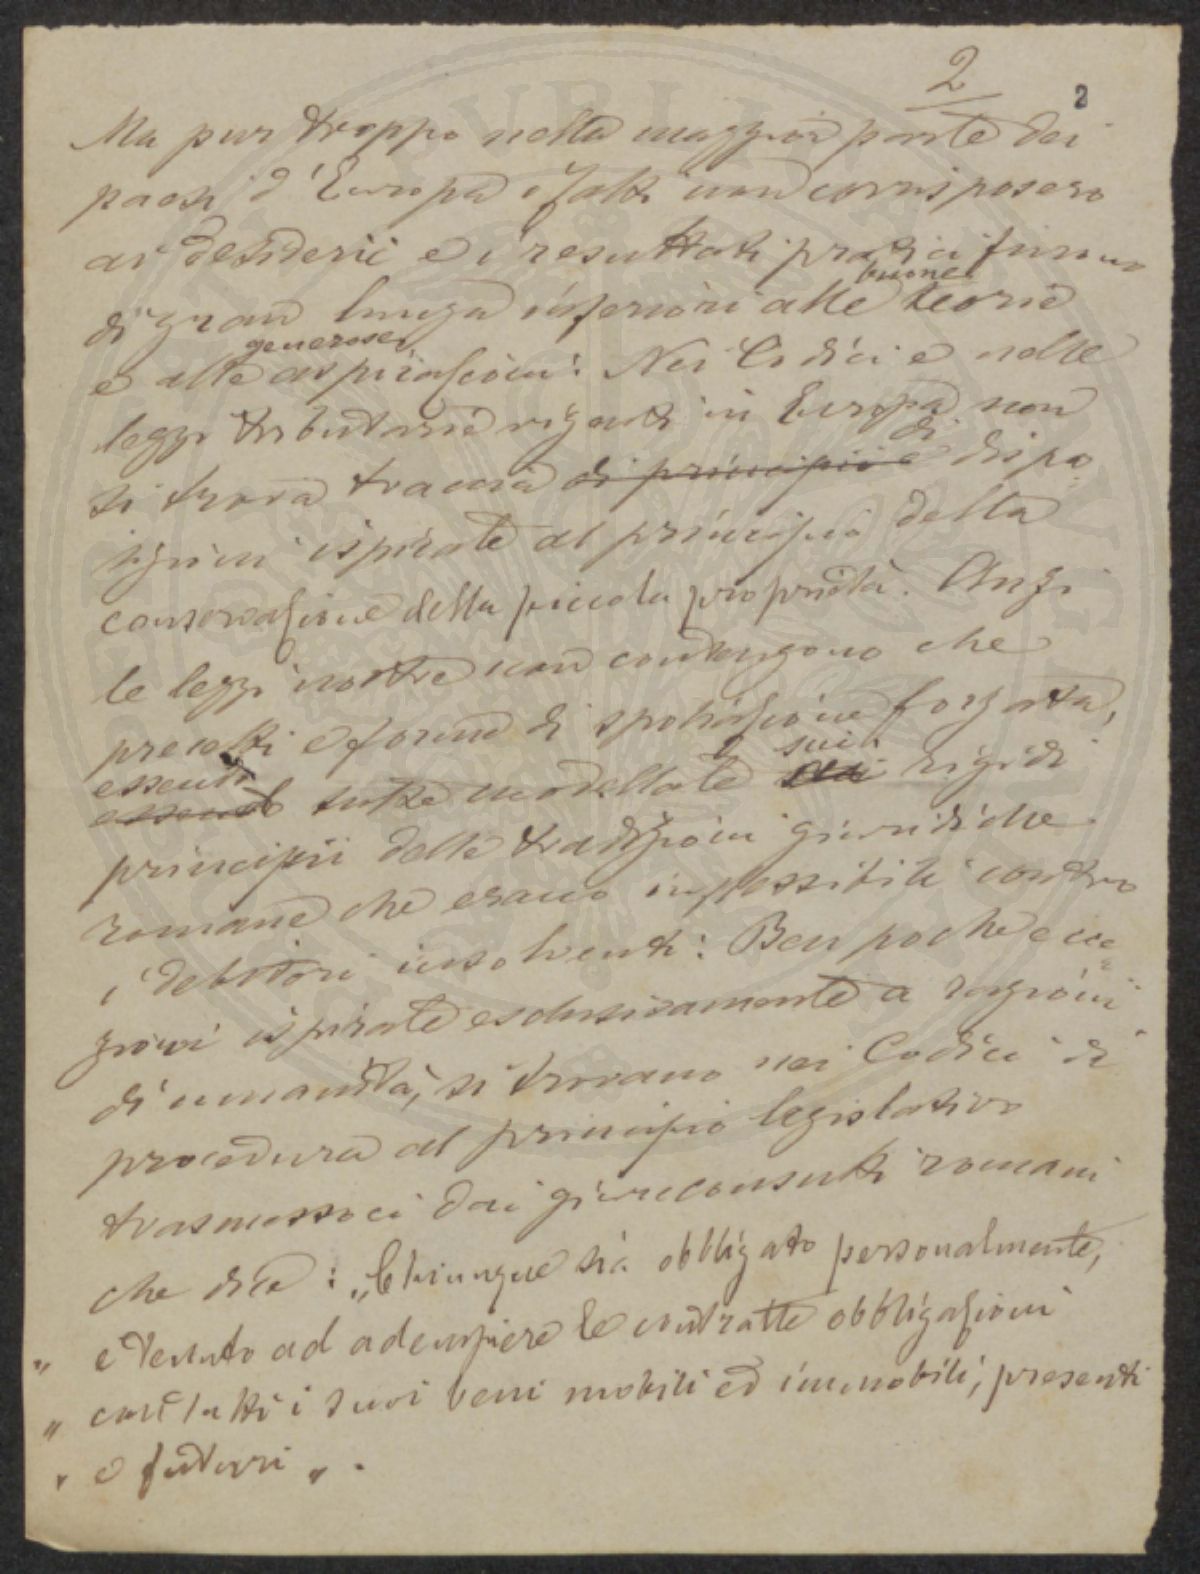 2
2
Ma pur troppo nella maggior parte dei
paesi d'Europa i fatti non corrisposero
ai desiderii e i resultati pratici furono
buone
di gran lunga inferiori alle teorie
generose
e alle aspirazioni: Nei Codici e nelle
leggi tributarie vigenti in Europa non
di
si trova traccia di principii e dispo=
sizioni ispirate al principio della
conservazione della piccola proprietà. Anzi
le leggi nostre non contengono che
precetti e forme di spoliazione forzata,
essendo sui
essendo tutte modellate rigidi
principii delle tradizioni giuridiche
romane che erano impossibili contro
i debitori insolventi: Ben poche ecce=
zioni ispirate esclusivamente a ragioni
di umanità, si trovano nei Codici di
procedura al principio legislativo
trasmessoci dai giureconsulti romani
che dice: „Chiunque sia obbligato personalmente,
„ è tenuto ad adempiere le contratte obbligazioni
„ con tutti i suoi beni mobili ed immobili, presenti
„ e futuri „.